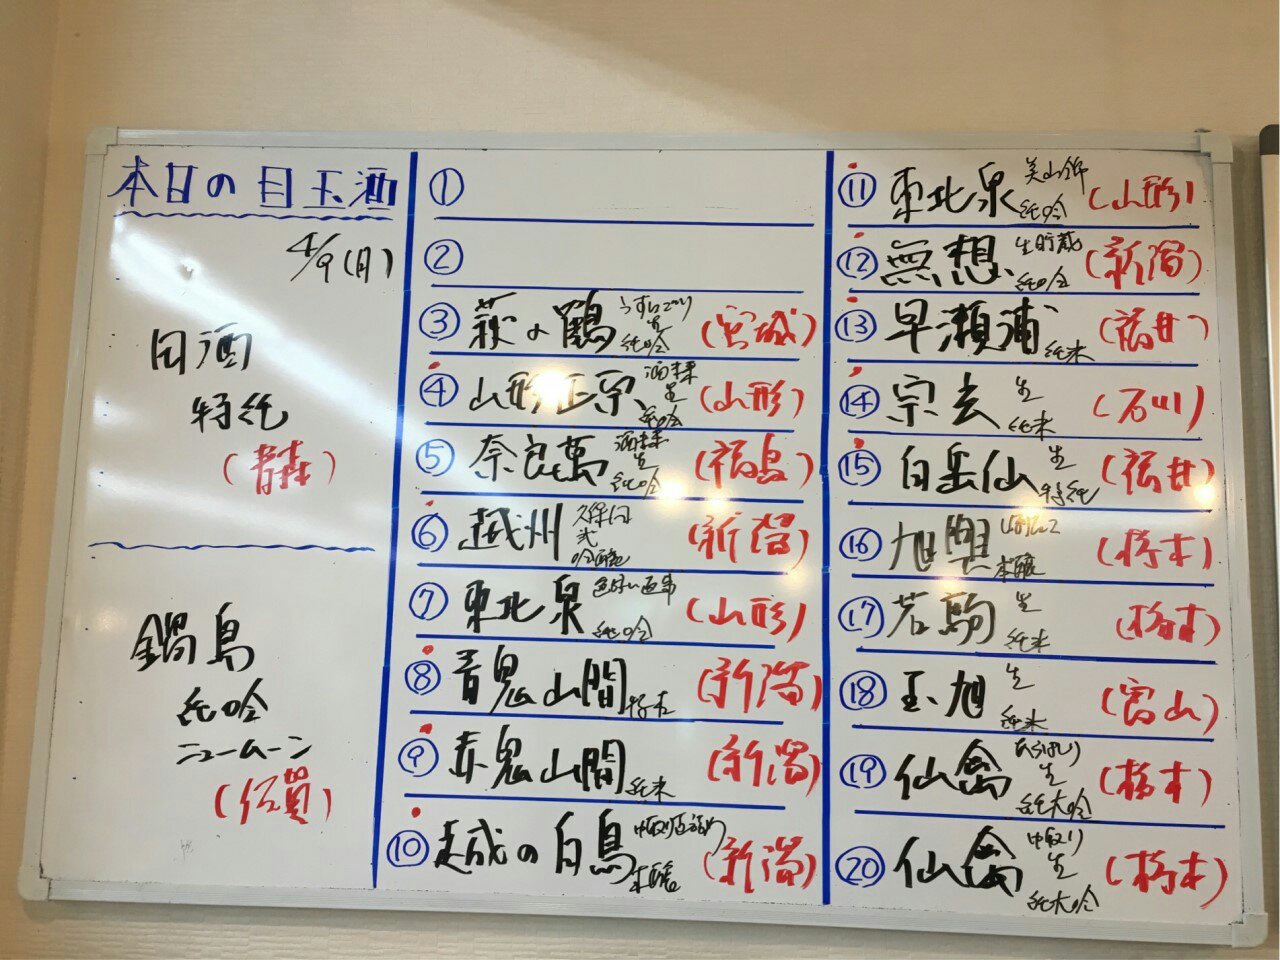 本日の目玉酒
4/9(月)
田酒
特純
(青森)
鍋島
純吟
ニュームーン
(佐賀)
①
②
③ 萩の鶴 うすにごり 生 純吟 (宮城)
④ 山形正宗 酒未来 生 純吟 (山形)
⑤ 奈良萬 酒未来 生 純吟 (福島)
⑥ 越州 吟醸 (新潟)
⑦ 東北泉 純吟 (山形)
⑧ 青鬼山間 特本 (新潟)
⑨ 赤鬼山間 純米 (新潟)
⑩ 越の白鳥 中取り直詰め 本醸 (新潟)
⑪ 東北泉 美山錦 純吟 (山形)
⑫ 無想 生貯蔵 純吟 (新潟)
⑬ 早瀬浦 純米 (福井)
⑭ 宗玄 生 純米 (石川)
⑮ 白岳仙 生 特純 (福井)
⑯ 旭興 本醸 (栃木)
⑰ 若駒 生 純米 (栃木)
⑱ 玉旭 生 純米 (富山)
⑲ 仙禽 あらばしり 生 純大吟 (栃木)
⑳ 仙禽 中取り 生 純大吟 (栃木)